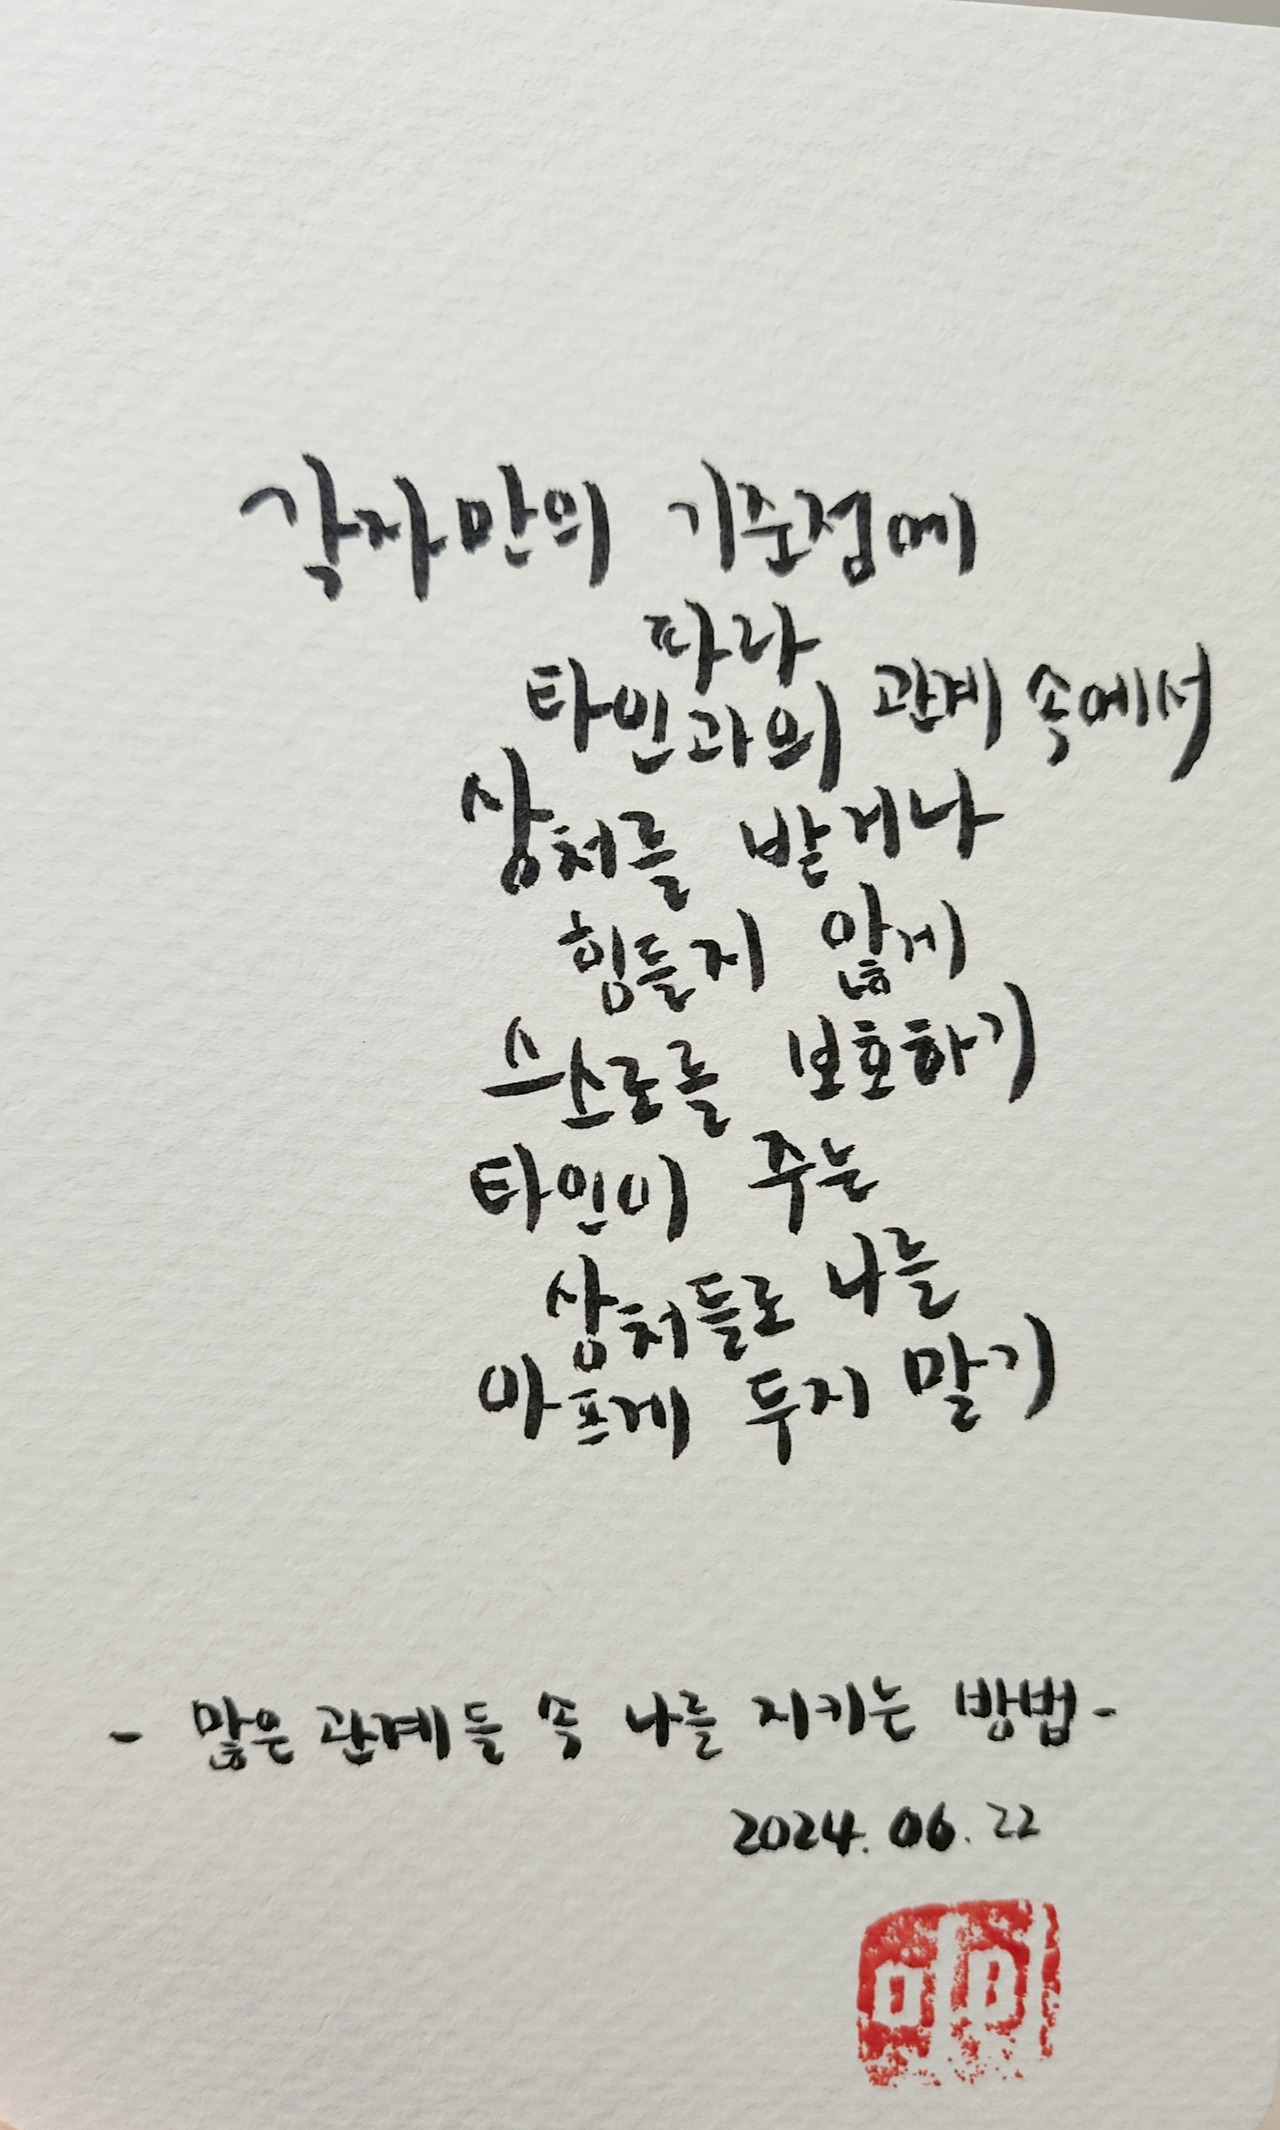 각자만의 기준점에
따라
타인과의 관계 속에서
상처를 받거나
힘들지 않게
스스로를 보호하기
타인이 주는
상처들로 나를
아프게 두지 말기
- 많은 관계들 속 나를 지키는 방법 -
2024. 06. 22